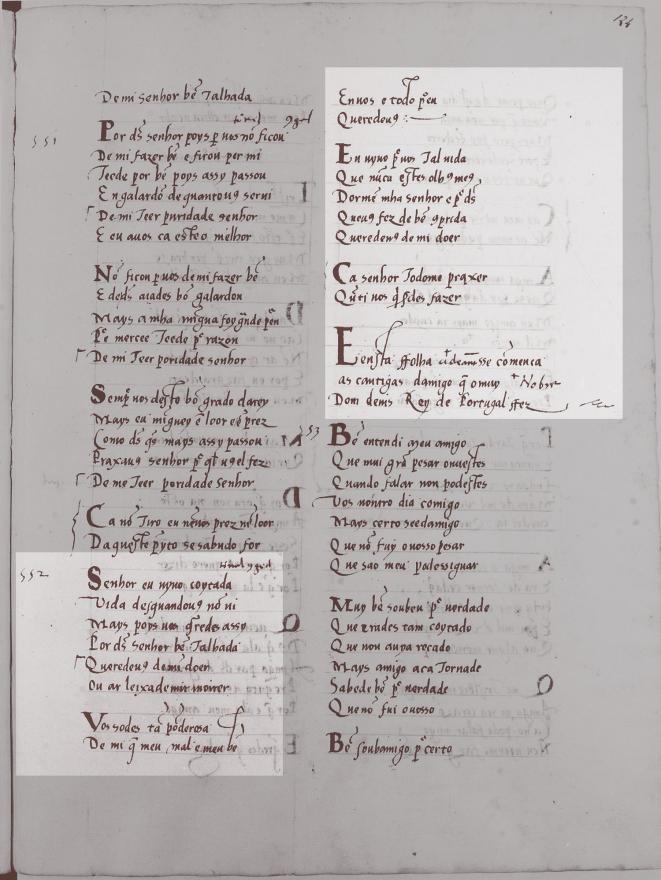 De mi senhor bẽ Talhada
551
Por ds̃ senhor poys ꝑ uos nõ ficou
De mi fazer bẽ e ficou per mi
Teede por bẽ poys assy passou
En galardõ de quanto uꝯ serui
De mi Teer puridade senhor
E eu auos ca esteo melhor
Nõ ficou ꝑ uos de mi fazer bẽ
E de ds̃ aiades bõ galardon
Mays a mha migua foy gñde
mercee Teede razon
De mi Teer poridade senhor
Semp̃ uos desto bõ grado darey
Mays eu miguey ẽ loor e ẽ prez
Como ds̃ q̃s mays assy passou
Praxauꝯ senhor
De me Teer poridade senhor
Ca nõ Tiro eu nẽ uos prez nẽ loor
Daqueste p̃yto se sabudo for
552
Senhor eu uyuo coytada
Vida desquando uꝯ nõ ui
Mays poys uos q̃redes assy
Por ds̃ senhor bẽ Talhada
Queredeuꝯ de mi doer
ou ar leixademir moirer
Vos sodes tã poderosa
De mi q̃ meu mal e meu bẽ
En uos e todo
Queredeuꝯ
Eu uyuo ꝑ uos Tal uida
Que nũca estes olhꝯ meꝯ
Dormẽ mha senhor e ds̃
Que uꝯ fez de bẽ
Queredeuꝯ de mi doer
Ca senhor Todome praxer
Quãti uos hi fazer
En esta ffolha comença
as cantigas damigo q̃ o muy Nobre
Dom denis Rey de Portugal ffez
553
Bẽ entendi meu amigo
Que mui grã pesar ouuestes
Quando falar non podestes
Vos noutro dia comigo
Mays certo seedamigo
Que nõ fuy o uosso pesar
Que sao meu podess iguar
Muy bẽ soubeu uerdade
Que erades tam coytado
Que non auya recado
Mays amigo aca Tornade
Sabede bẽ uerdade
Que nõ fui o uosso
Bẽ soubamigo certo